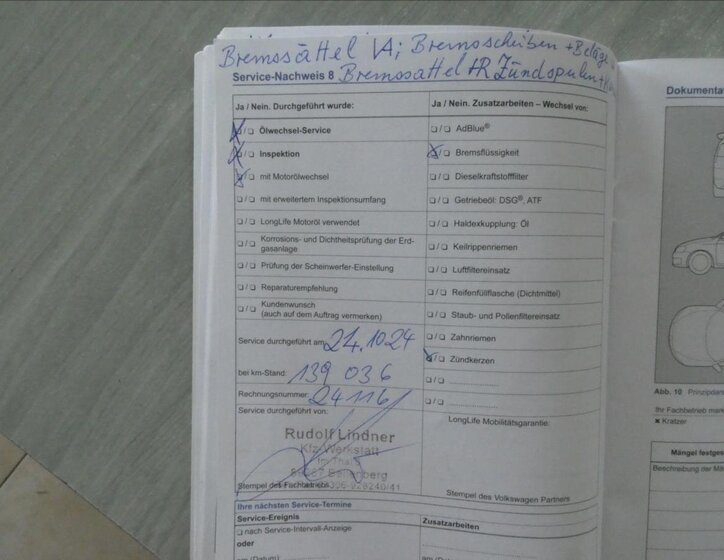 Bremssättel VA; Bremsscheiben + Beläge
Service-Nachweis 8 Bremssattel HR Zündspulen +
Ja / Nein. Durchgeführt wurde:
Ja / Nein. Zusatzarbeiten – Wechsel von:
❑/❑ Ölwechsel-Service
❑/❑ AdBlue®
❑/❑ Inspektion
❑/❑ Bremsflüssigkeit
❑/❑ mit Motorölwechsel
❑/❑ Dieselkraftstofffilter
❑/❑ mit erweitertem Inspektionsumfang
❑/❑ Getriebeöl: DSG®, ATF
❑/❑ LongLife Motoröl verwendet
❑/❑ Haldexkupplung: Öl
❑/❑ Korrosions- und Dichtheitsprüfung der Erd-
gasanlage
❑/❑ Keilrippenriemen
❑/❑ Prüfung der Scheinwerfer-Einstellung
❑/❑ Luftfiltereinsatz
❑/❑ Reparaturempfehlung
❑/❑ Reifenfüllflasche (Dichtmittel)
❑/❑ Kundenwunsch
(auch auf dem Auftrag vermerken)
❑/❑ Staub- und Pollenfiltereinsatz
❑/❑ Zahnriemen
Service durchgeführt am 24.10.24
❑/❑ Zündkerzen
bei km-Stand: 139 036
❑/❑ ................
Rechnungsnummer: 24116
❑/❑ ................
Service durchgeführt von:
LongLife Mobilitätsgarantie:
Rudolf Lindner
Kfz-Werkstatt
Im Thal
Stempel des Fachbetriebs
Stempel des Volkswagen Partners
Ihre nächsten Service-Termine
Service-Ereignis
Zusatzarbeiten
❑ nach Service-Intervall-Anzeige
oder
am (Datum):
Dokumenta
Abb. 10 Prinzipdar
Ihr Fachbetrieb mar
✖ Kratzer
Mängel festges
Beschreibung der Mä